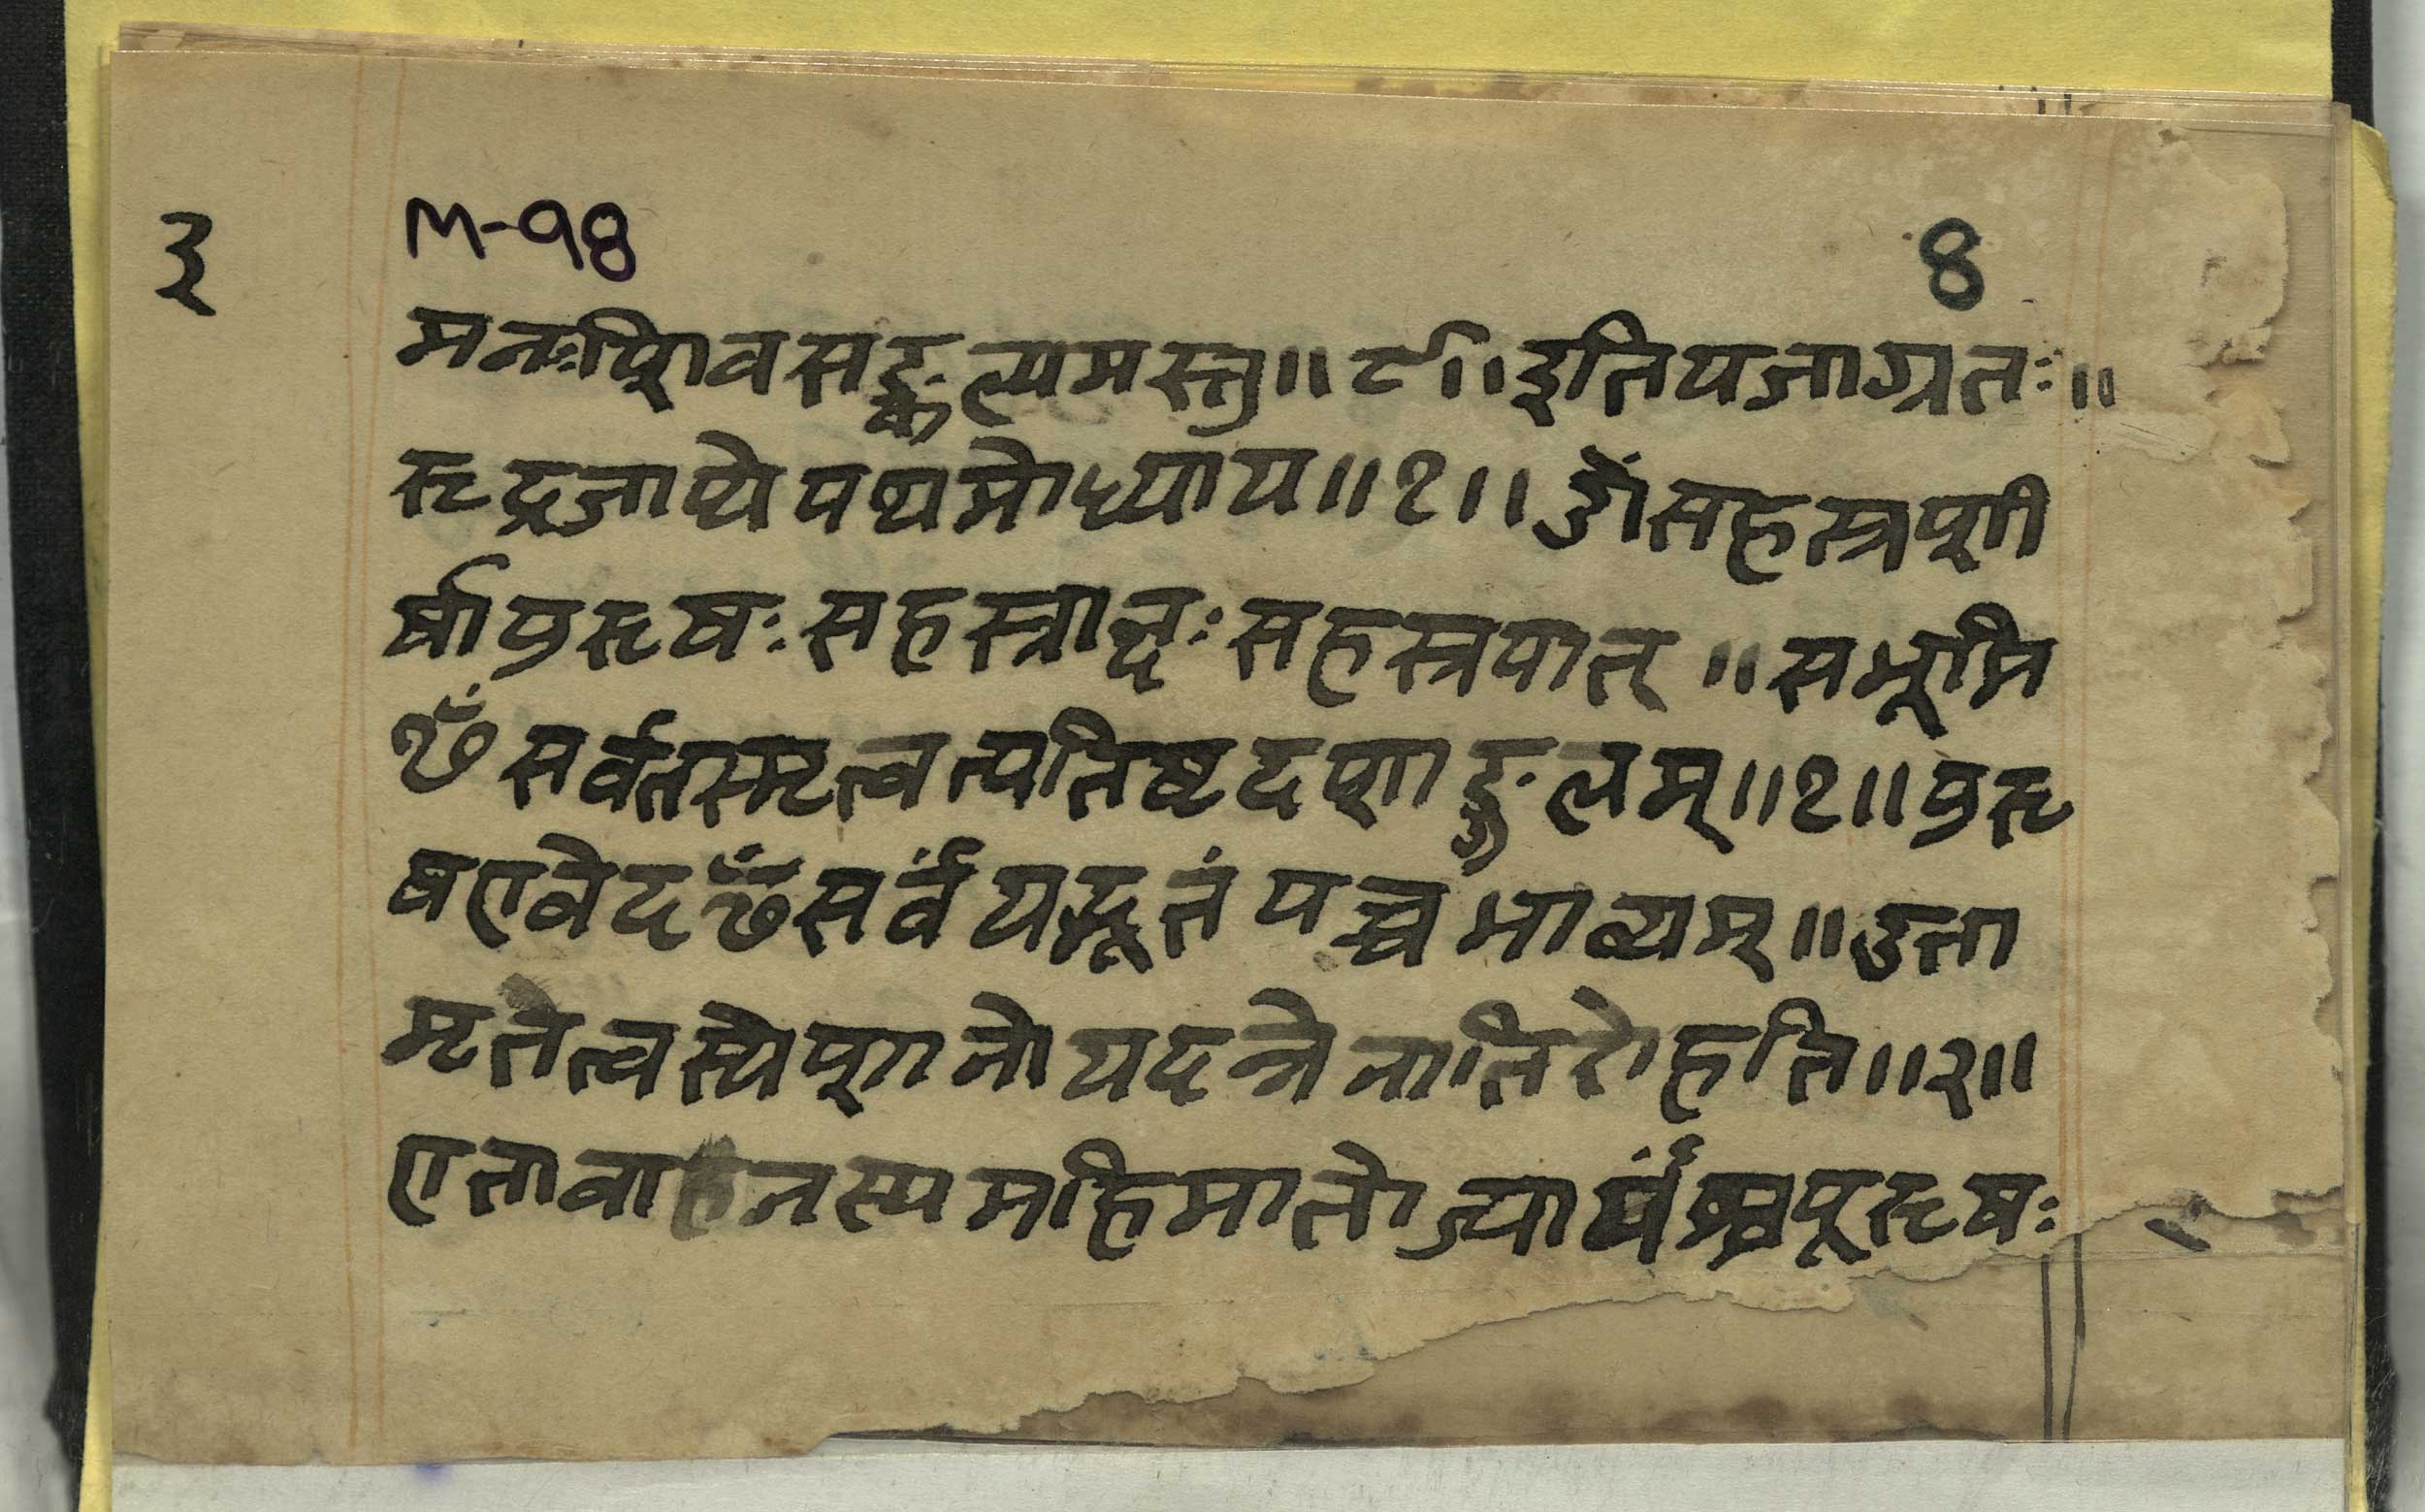 ३ M-98 8
मनःशिवसङ्कल्पमस्तु॥ ८॥इतियज्जाग्रतः॥
रूद्रजाप्येपथमोध्याय॥१॥ ॐसहस्रशी
र्षापुरूषःसहस्राक्षःसहस्रपात् ॥सभूमि
ꣳसर्वतस्मृत्वत्यतिष्टदशाङ्गुलम्॥१॥पुरू
षएवेदꣳसर्वंयद्भूतंयच्चभाव्यम्॥उता
मृतत्वस्येशानोयदन्नेनातिरोहति॥२॥
एतावानस्यमहिमातोज्यायाँश्चपूरूषः